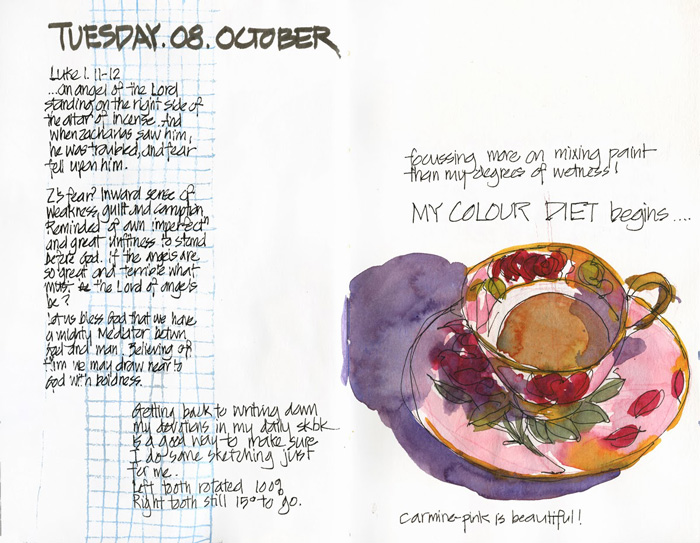 TUESDAY. 08. OCTOBER
Luke 1. 11-12
...an angel of the Lord
standing on the right side of
the altar of incense. And
when zacharias saw him,
he was troubled, and fear
fell upon him.
Z's fear? Inward sense of
weakness, guilt and corruption
Reminded of own imperfectn
and great unfitness to stand
before God. if the angels are
so great and terrible what
must the Lord of angels
be?
Let us bless God that we have
a mighty Mediator betwn
God and man. Believing of
Him we may draw near to
God with boldness.
Getting back to writing down
my devotions in my daily skbk
is a good way to make sure
I do some sketching just
for me..
Left tooth rotated 100%
Right tooth still 15° to go.
focussing more on mixing paint
than my degrees of wetness!
MY COLOUR DIET begins....
carmine-pink is beautiful!